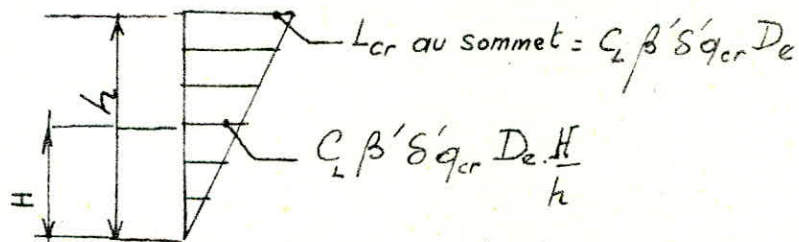 L_cr au sommet = C_L β' δ' q_cr D_e
h
C_L β' δ' q_cr D_e . H/h
H